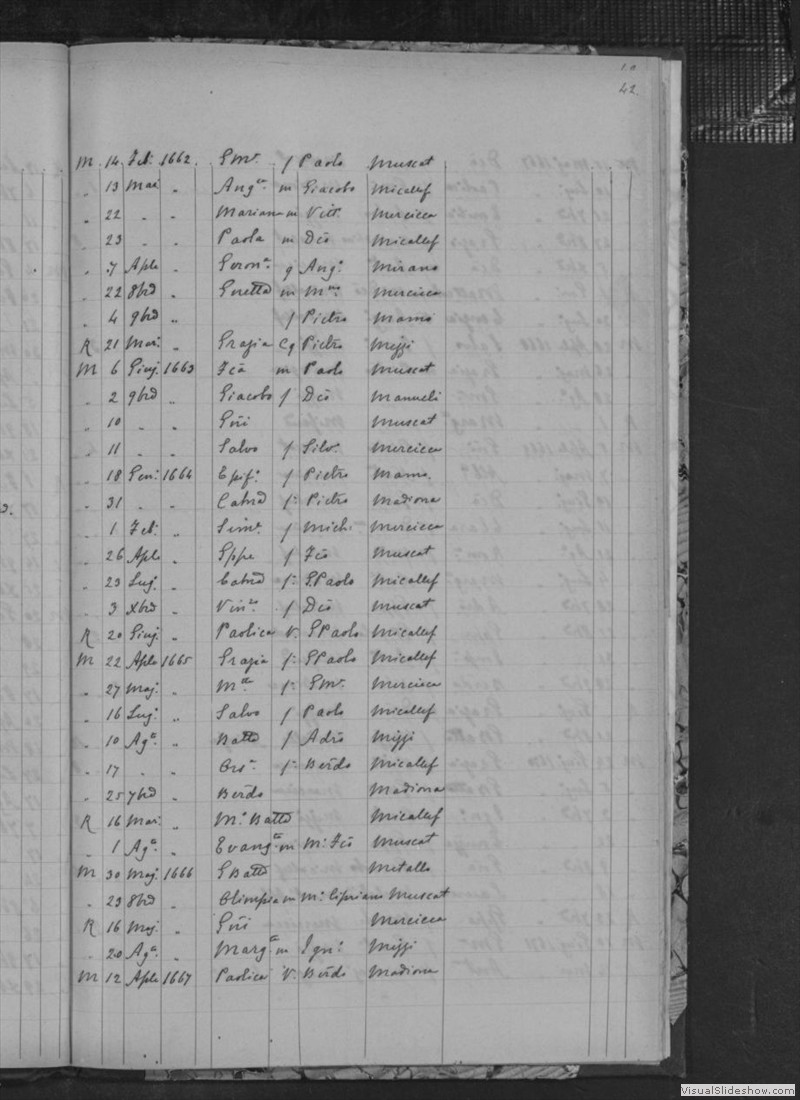 10
42.
M 14 Feb. 1662. Sim.r f Paolo Muscat
" 13 Mar. " Ang.ca m Giacobo Micallef
" 22 " " Mariana m Vitt.o Mercieca
" 23 " " Paola m Dco Micallef
" 7 Aple " Geron.a q Ang.o Mirano
" 22 8bre " Gnetta m M.no Mercieca
" 4 9bre " f Pietro Mamo
R 21 Mar. " Grazia Cq Pietro Mizzi
M 6 Giug. 1663 Fca m Paolo Muscat
" 2 9bre " Giacobo f Dco Manueli
" 10 " " Gni Muscat
" 11 " " Salvo f Silv.o Mercieca
" 18 Gen. 1664 Epif.o f Pietro Mamo.
" 31 " " Catna f.a Pietro Madiona
" 1 Feb. " Sim.r f Michi Mercieca
" 26 Aple " Gppe f Fco Muscat
" 23 Lug. " Catna f.a GPaolo Micallef
" 3 Xbre " Vin.zo f Dco Muscat
R 20 Giug. " Paolica V. GPaolo Micallef
M 22 Aple 1665 Grazia f.a GPaolo Micallef
" 27 Mag. " M.da f.a Sim.r Mercieca
" 16 Lug. " Salvo f Paolo Micallef
" 10 Ag.o " Batta f Adro Mizzi
" 17 " " Ors.a f.a Berdo Micallef
" 25 7bre " Berdo Madiona
R 16 Mar. " M.o Batta Micallef
" 1 Ag.o " Evang.ta m M.o Fco Muscat
M 30 Mag. 1666 GBatta Metallo
" 23 8bre " Olimpia m M.o Cipriano Muscat
R 16 Mag. " Gni Mercieca
" 20 Ag.o " Marg.a m Ign.o Mizzi
M 12 Aple 1667 Paolica V. Berdo Madiona
VisualSlideshow.com